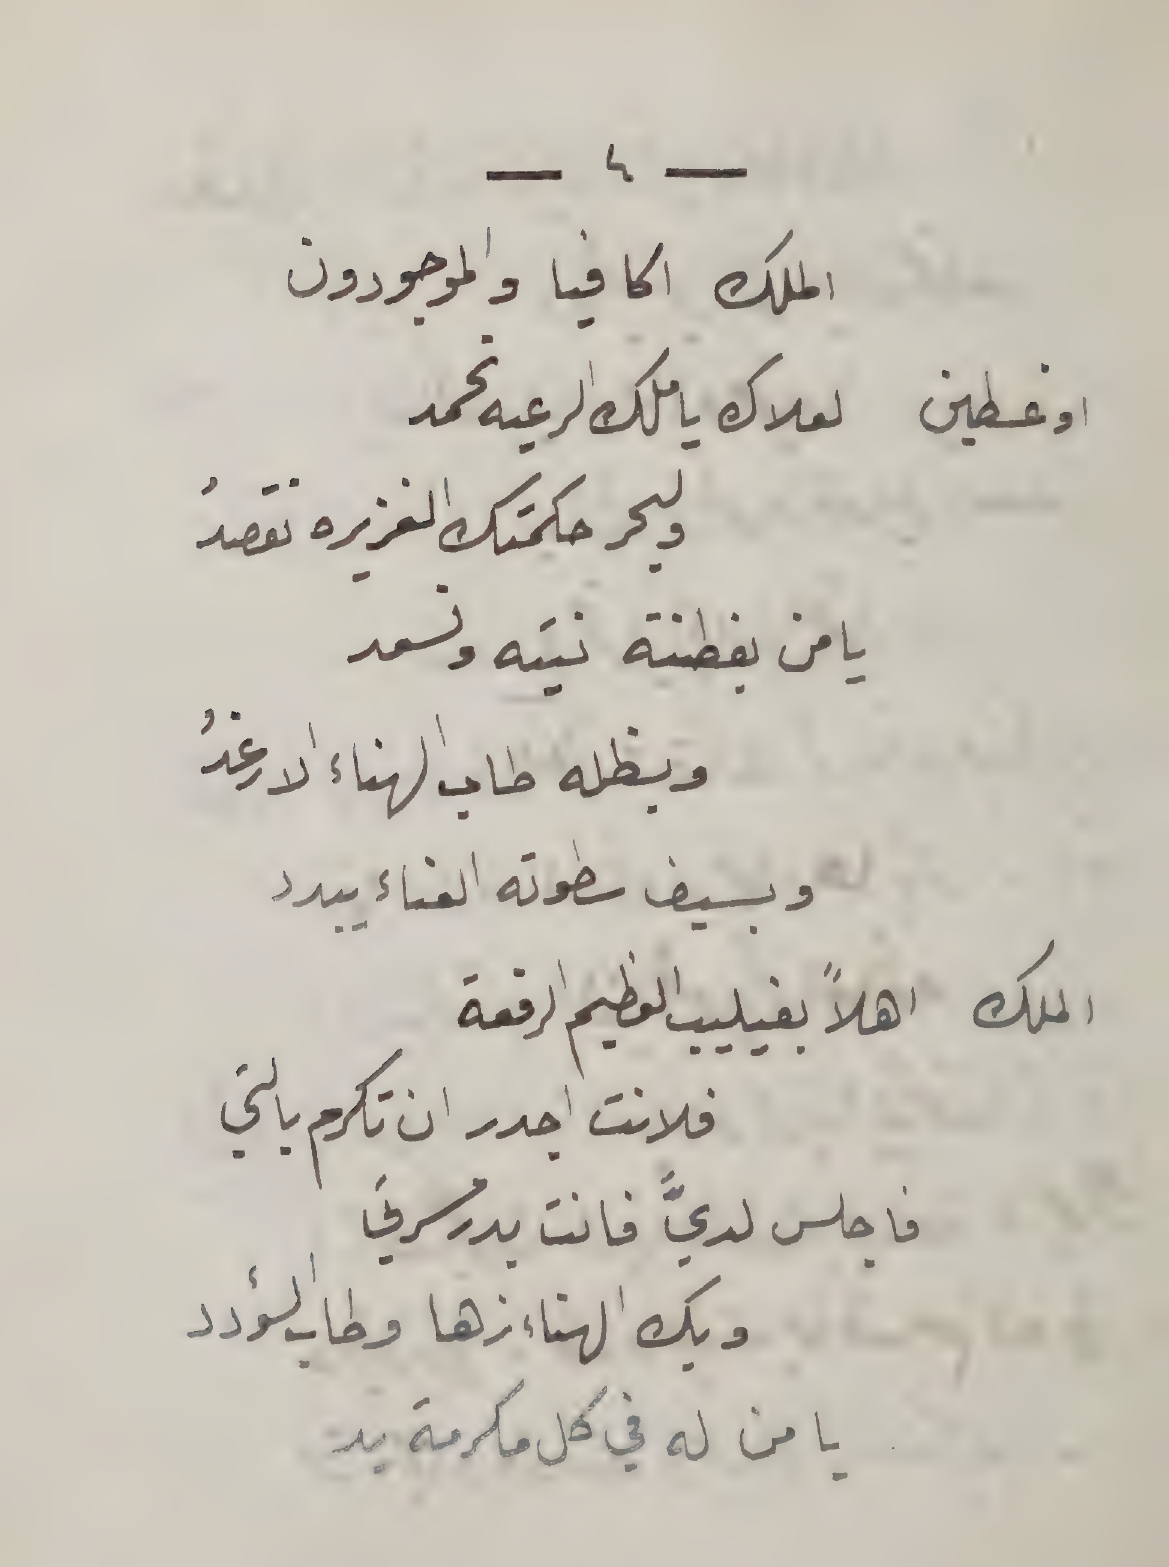 — ٤ —
الملك اكافيا والموجودون
اوغسطين لعلاك يا ملك الرعيه نحمد
ولبحر حكمتك الغزيره نقصدُ
يا من بفطنة نيته ونسعد
وبظله طاب الهناء الارغدُ
وبسيف سطوته العناء يبدد
الملك اهلاً بفيليب العظيم الرفعة
فلانت اجدر ان تكرم بالتي
فاجلس لديَّ فانت بدر مسرتي
وبك الهناء زها وطاب السؤدد
يا من له في كل مكرمة يد